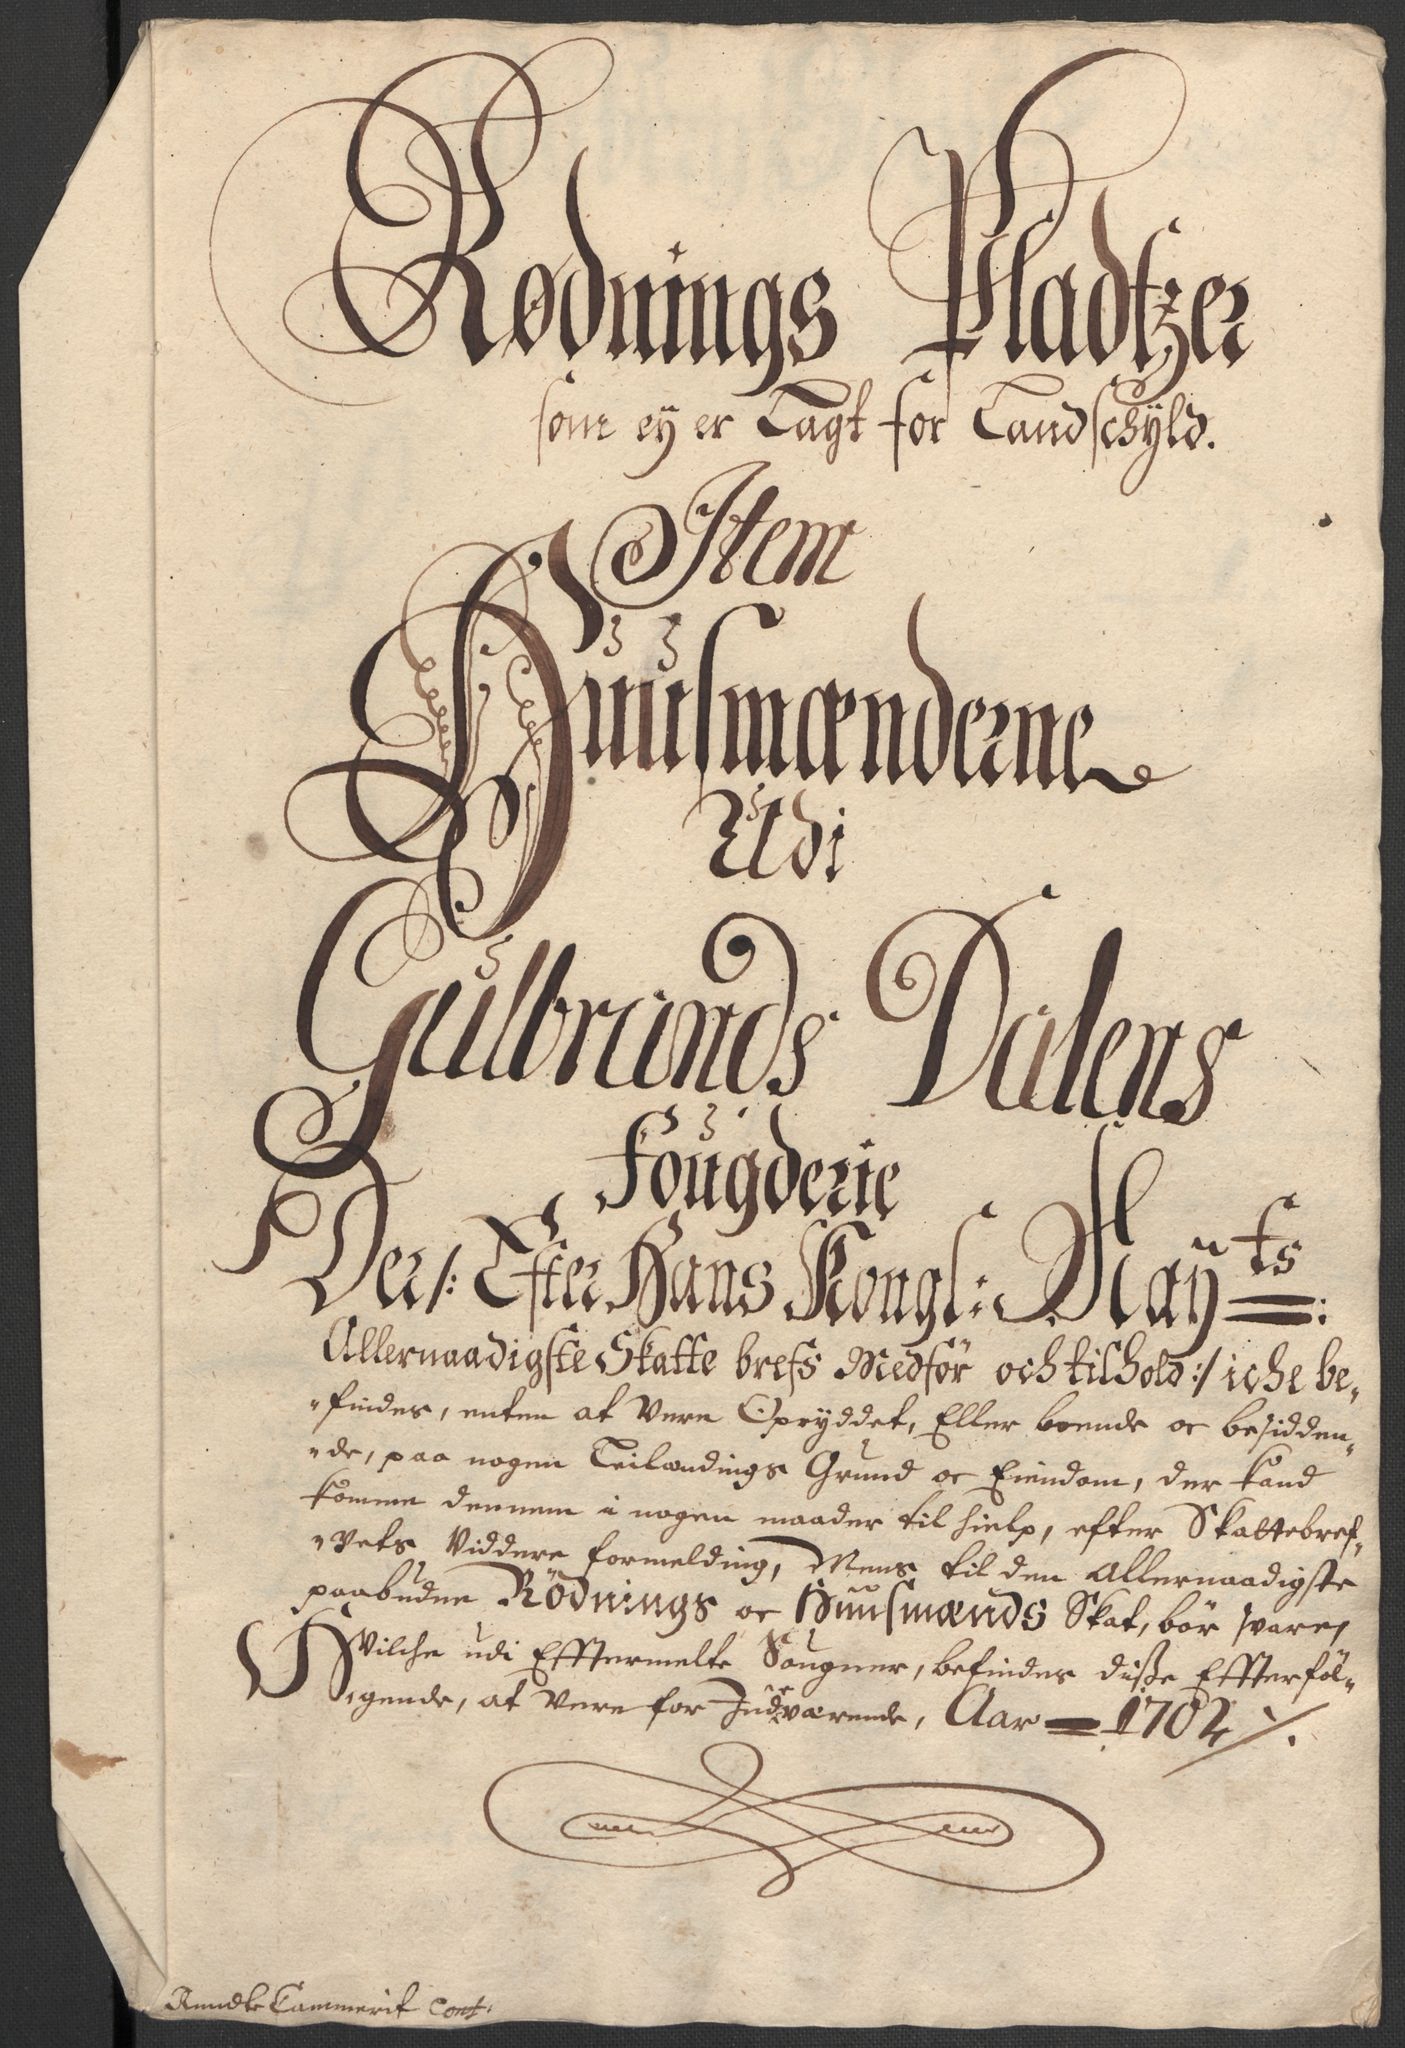 Rødnings Pladtzer
som ey er Lagt for Landschyld.
Item
Huusmænderne
Udi
Gulbrands Dalens
Fougderie
Der /: Efter Hans Kongl: Mayts:
Allernaadigste Skatte brefs Medför och tilhold :/ iche be-
findes, enten at Vere Opryddet, Eller boende oc besidden-
de, paa nogen Teilændings Grund oc Eiendom, der kand
komme dennem i nogen maader til hielp, efter Skattebref-
vets Viddere formelding, Mens til den Allernaadigste
paabudne Rödnings oc Huusmænds Skat, bör svare,
Hvilche udi Efftermelte Sougner, befindes disse Effterföl-
gende, at Vere for Indeværende, Aar 1702 /.
Cammerit Cont: